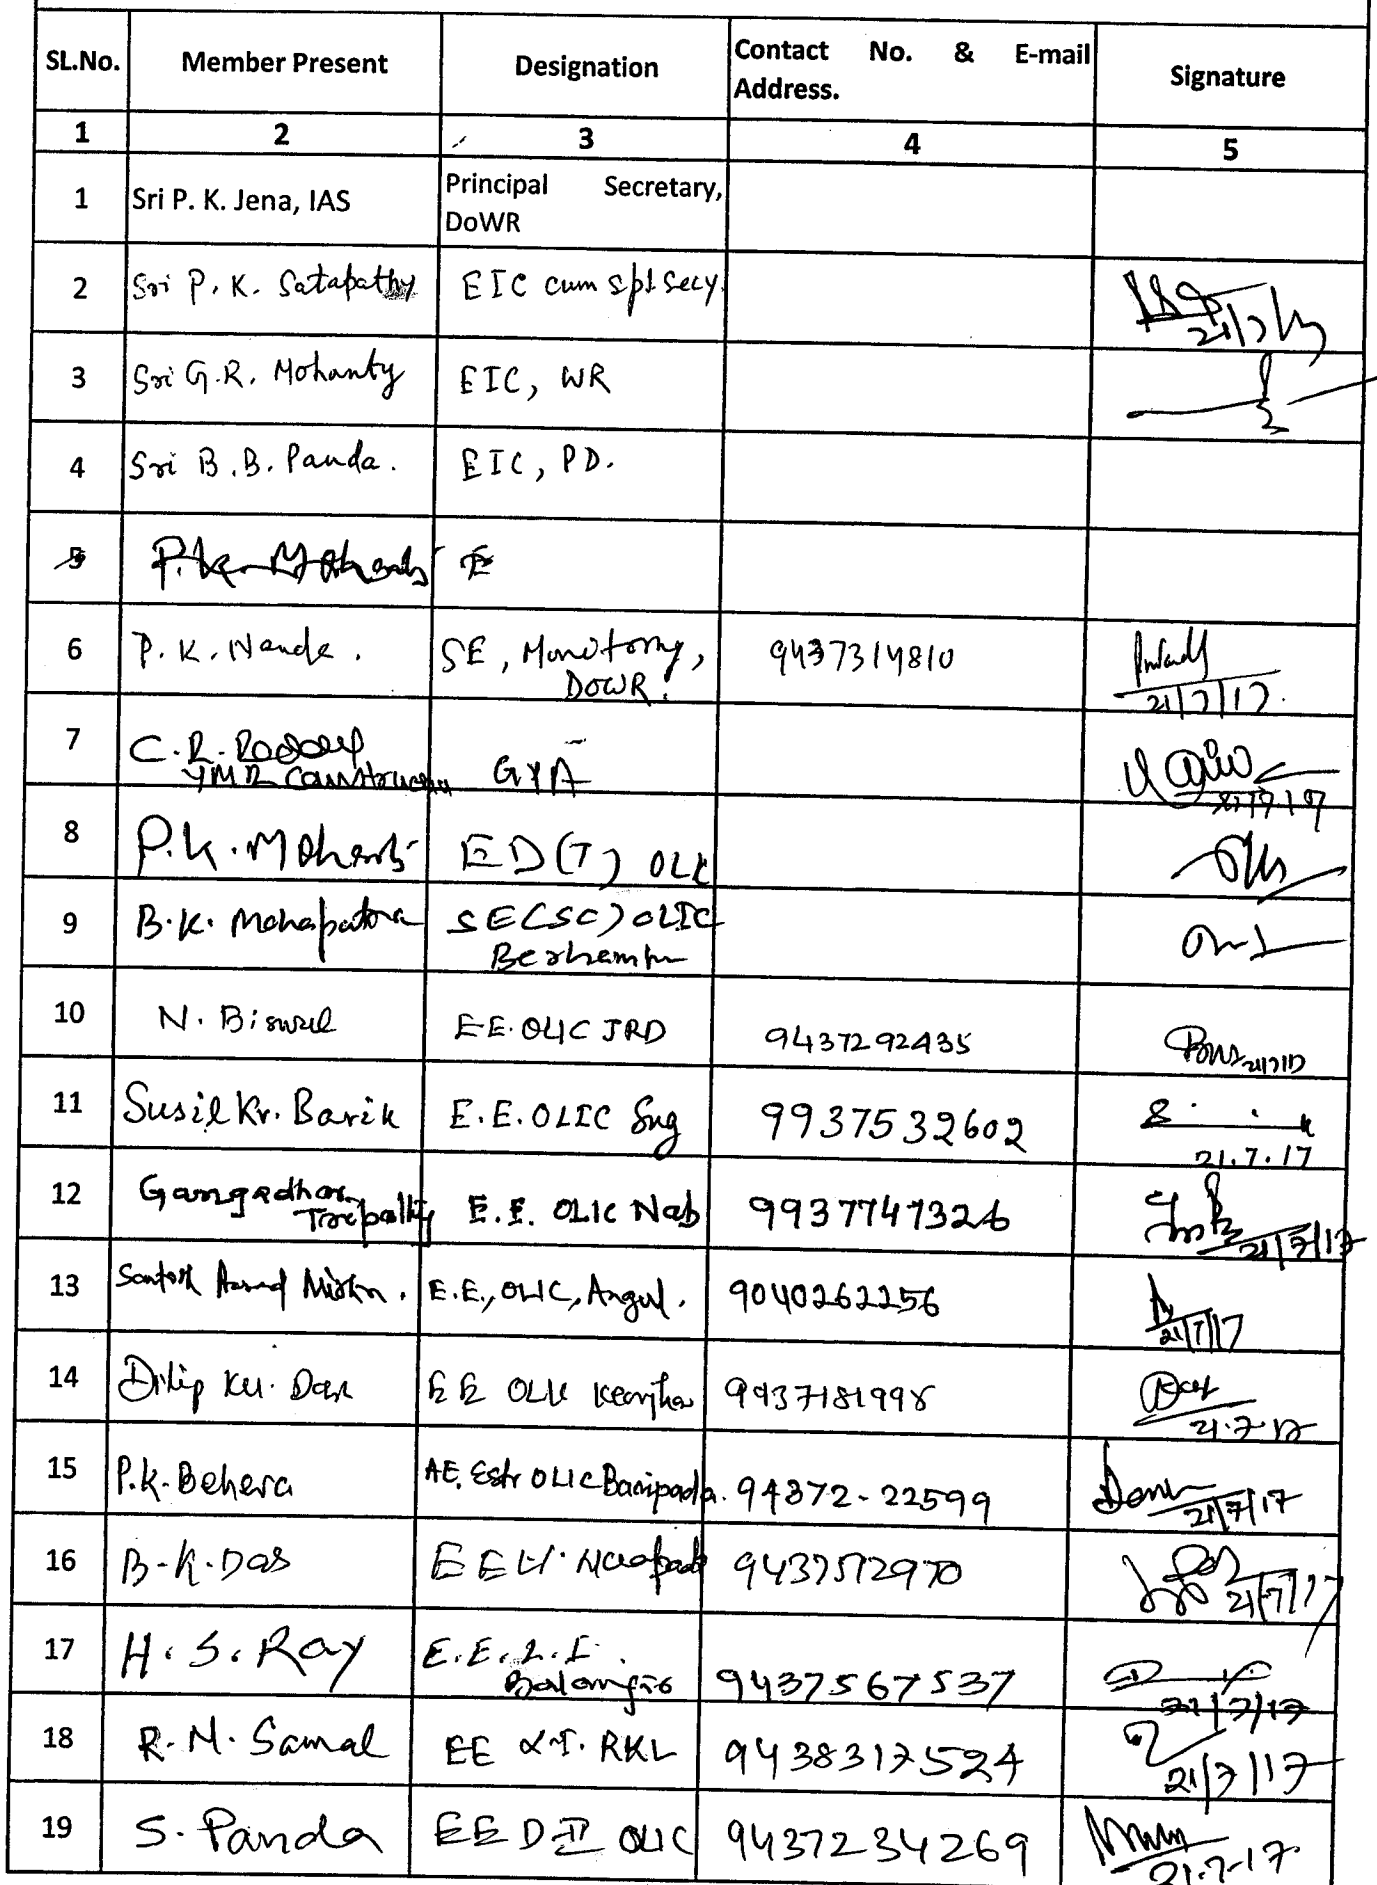 SL.No. Member Present Designation Contact No. & E-mail Address. Signature
1 2 3 4 5
1 Sri P. K. Jena, IAS Principal Secretary, DoWR
2 Sri P. K. Satapathy EIC cum spl secy. 21/7/17
3 Sri G.R. Mohanty EIC, WR
4 Sri B.B. Panda. EIC, PD.
5 P.K. Mohanty E
6 P.K. Nanda. SE, DOWR. 9437314810 21/7/17.
7 C.R.
YMR
8 P.K. Mohanty ED(T) OLIC
9 B.K. Mohapatra SE(SC) OLIC
10 N. Biswal E.E. OLIC JRD 9437292435 21/7/17
11 Susil Kr. Barik E.E. OLIC 9937532602 21.7.17
12 Gangadhar Tripathy E.E. OLIC Nab 9937747326 21/7/17
13 Santosh Mishra. E.E., OLIC, Angul. 9040262256 21/7/17
14 Dilip Ku. Das EE OLIC 9437181998 21.7.17
15 P.K. Behera AE, Estt OLIC Baripada. 94372-22599 21/7/17
16 B.K. Das EE LI. 9437572970 21/7/17
17 H.S. Ray E.E. L.I. 9437567537 21/7/17
18 R.M. Samal EE L.I. RKL 9438317524 21/7/17
19 S. Panda EE D II OLIC 9437234269 21.7.17